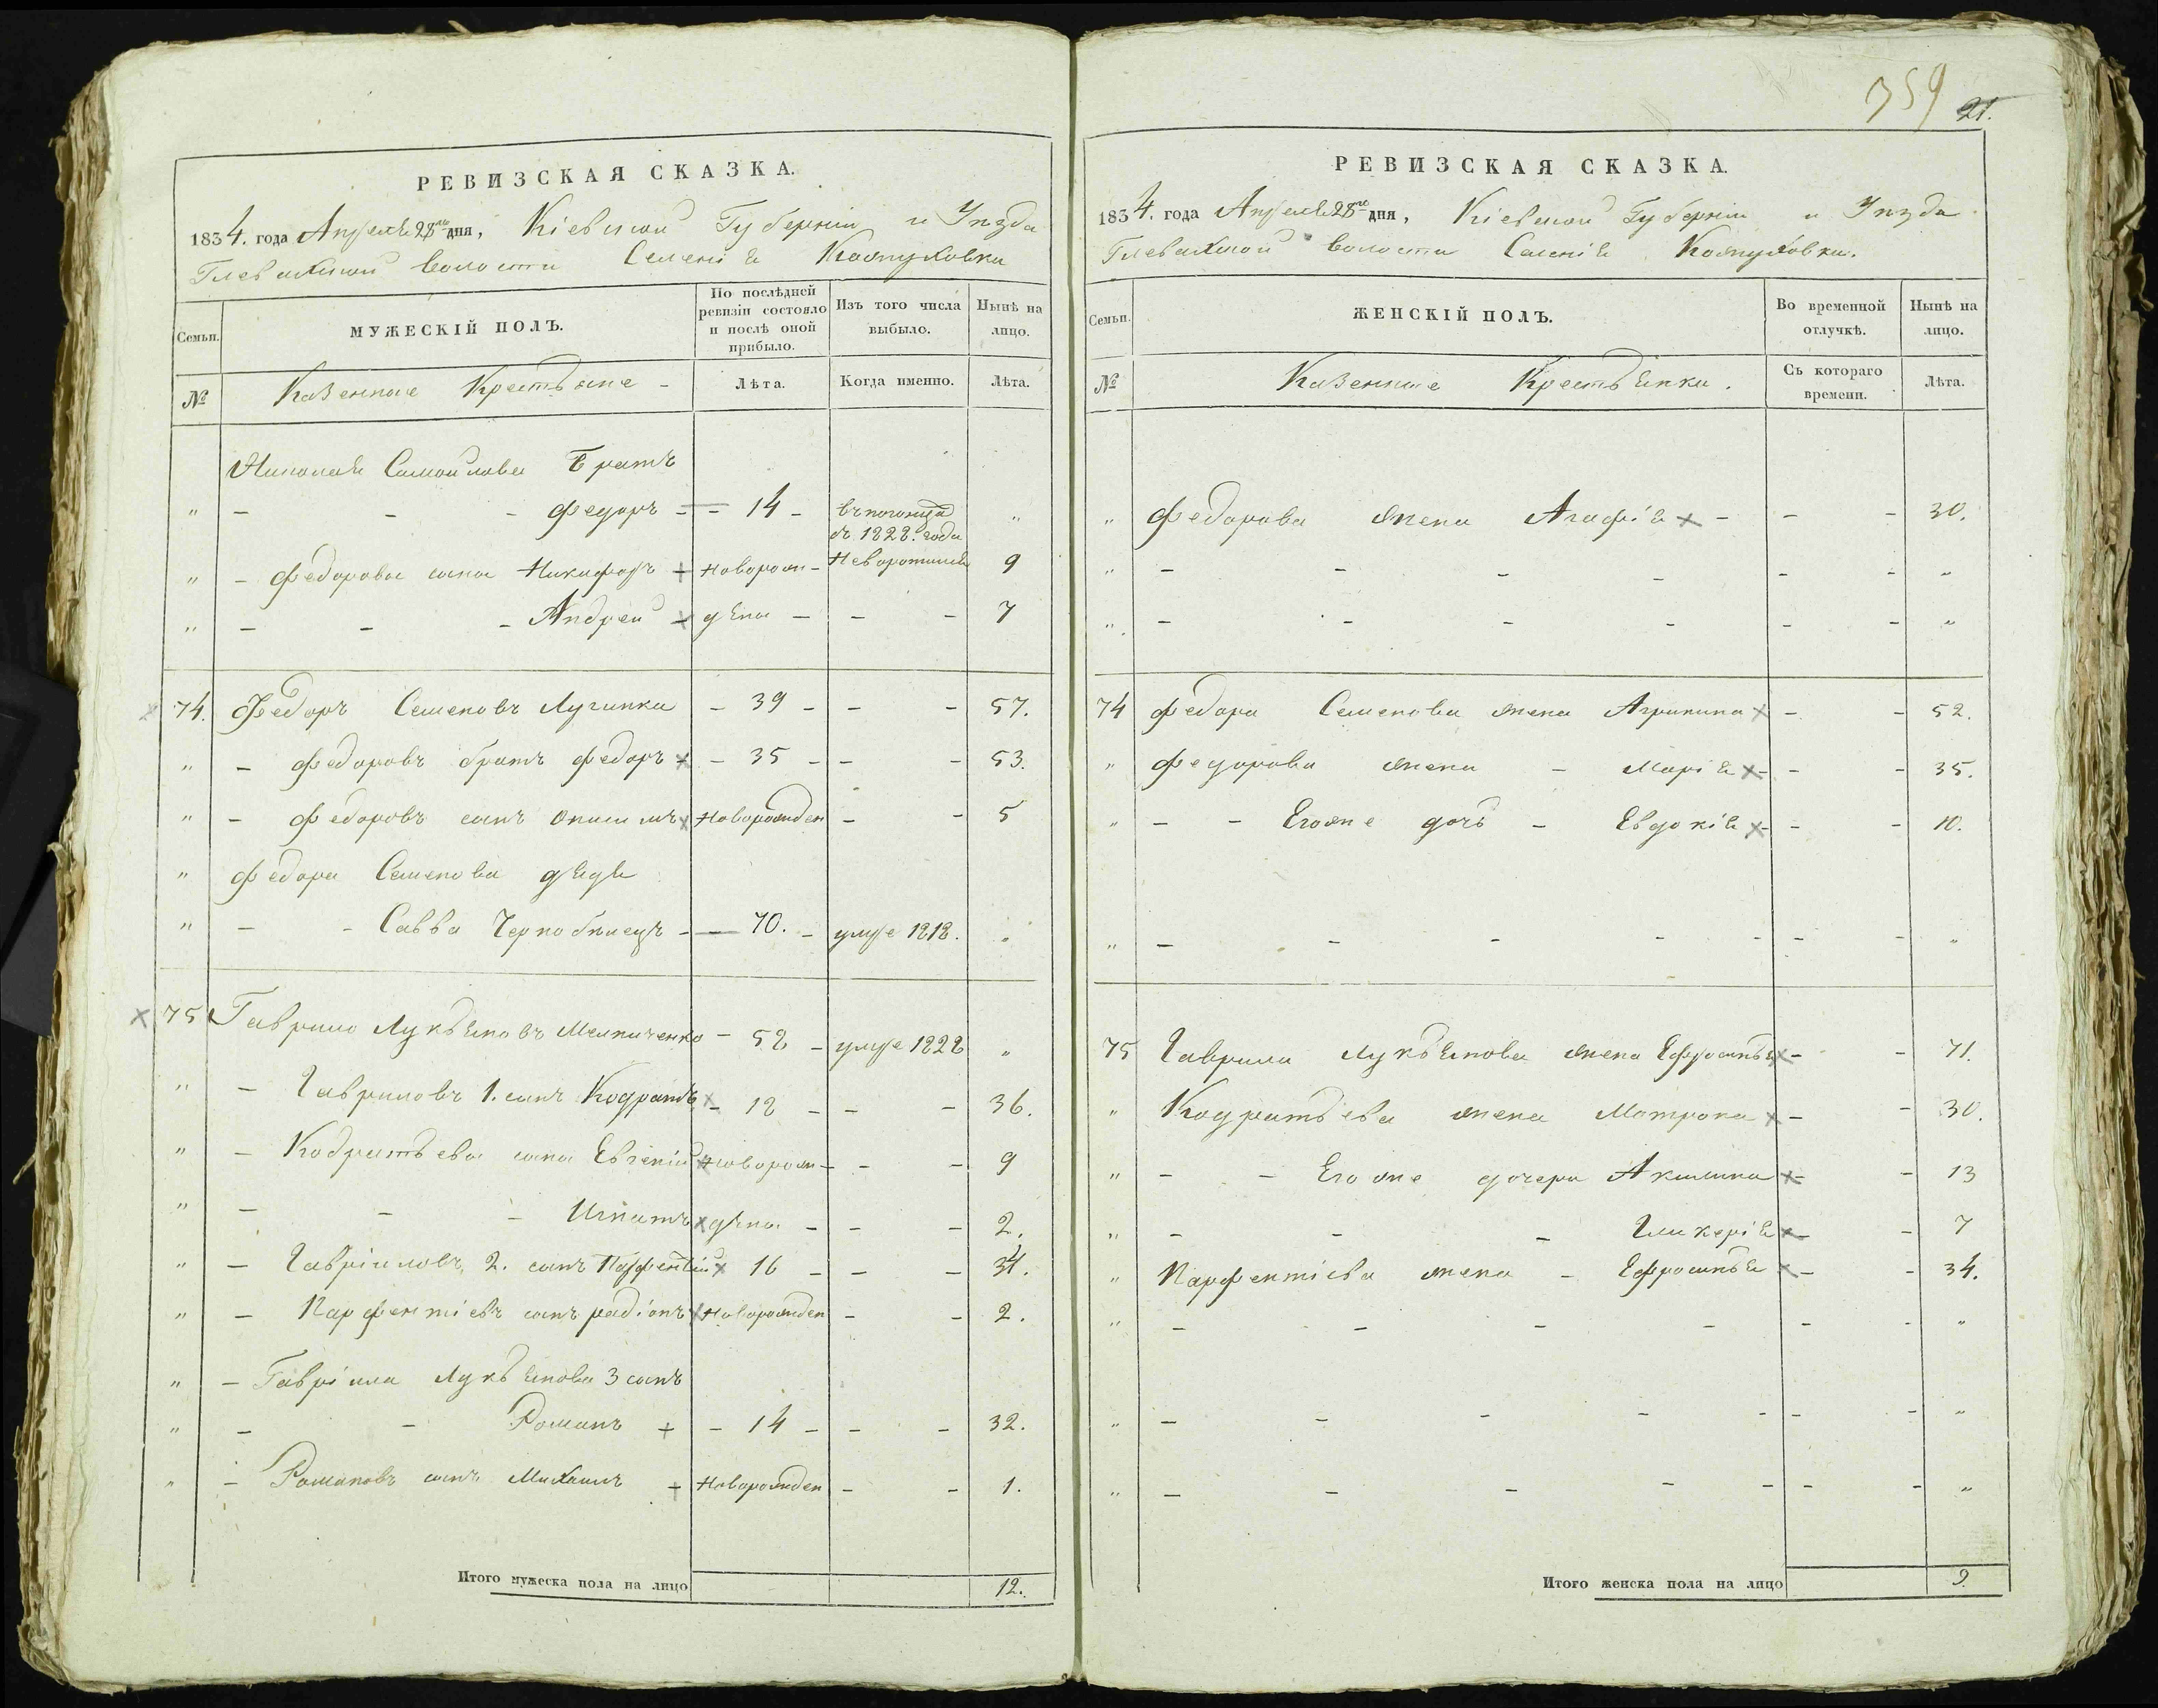 359
21.
РЕВИЗСКАЯ СКАЗКА.
1834. года Апреля 28го дня, Кіевской Губерніи и Уезда
Глевахской волости Селенія Кожуховки
Семьи.
МУЖЕСКІЙ ПОЛЪ.
По послѣдней ревизіи состояло и послѣ оной прибыло.
Изъ того числа выбыло.
Нынѣ на лицо.
№
Казенные Крестьяне -
Лѣта.
Когда именно.
Лѣта.
Николая Самойлова Братъ
" - - - Федоръ - - 14 -
съ 1828. года "
" - Федоровы сыны Никифоръ + Новорож- 9
" - - - Андрей х дены - - - 7
74. Федоръ Семеновъ - 39 - - - 57.
" - Федоровъ братъ Федоръ х - 35 - - - 53.
" - Федоровъ сынъ Онисимъ х Новорожден - - 5
" Федора Семенова дядя
" - - Савва - 70. - умре 1818. "
75 Гаврило Лукьяновъ Мельниченко - 58 - умре 1828 "
" - Гавриловъ 1. сынъ Кодратъ х - 18 - - - 36.
" - Кодратьевы сыны Евгеній х новорож- - - 9
" - - - Игнатъ х дены - - - 2.
" - Гавріиловъ, 2. сынъ Парфентій х 16 - - - 34.
" - Парфентіевъ сынъ радіонъ х Новорожден - - 2.
" - Гавріила Лукьянова 3 сынъ
" - - Романъ + - 14 - - - 32.
" - Романовъ сынъ Михаилъ + Новорожден - - 1.
Итого мужеска пола на лицо 12.
РЕВИЗСКАЯ СКАЗКА.
1834. года Апреля 28го дня, Кіевской Губерніи и Уезда
Глевахской волости Селенія Кожуховки.
Семьи.
ЖЕНСКІЙ ПОЛЪ.
Во временной отлучкѣ.
Нынѣ на лицо.
№
Казенные Крестьянки.
Съ котораго времени.
Лѣта.
" Федорова жена Агафія х - - - 30.
" - - - - - - "
" - - - - - - "
74 Федора Семенова жена Агрипина х - - 52.
" Федорова жена - Марія х - - - 35.
" - - Егоже дочь - Евдокія х - - - 10.
" - - - - - - - "
75 Гаврила Лукьянова жена Ефросинья х - - 71.
" Кодратьева жена Матрона х - - 30.
" - - Егоже дочери Акилина х - - 13
" - - - Гликерія х - - 7
" Парфентіева жена - Ефросинья х - - 34.
" - - - - - - "
" - - - - - - - "
" - - - - - - - "
Итого женска пола на лицо 9.